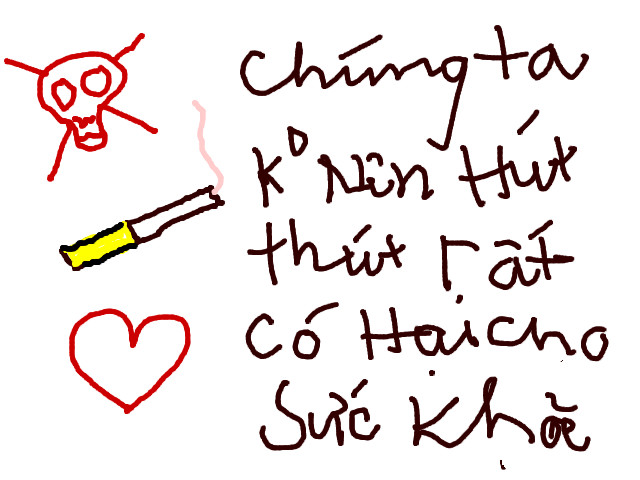 chúng ta
K° Nên Hút
thút rất
có Hại cho
sức Khõe